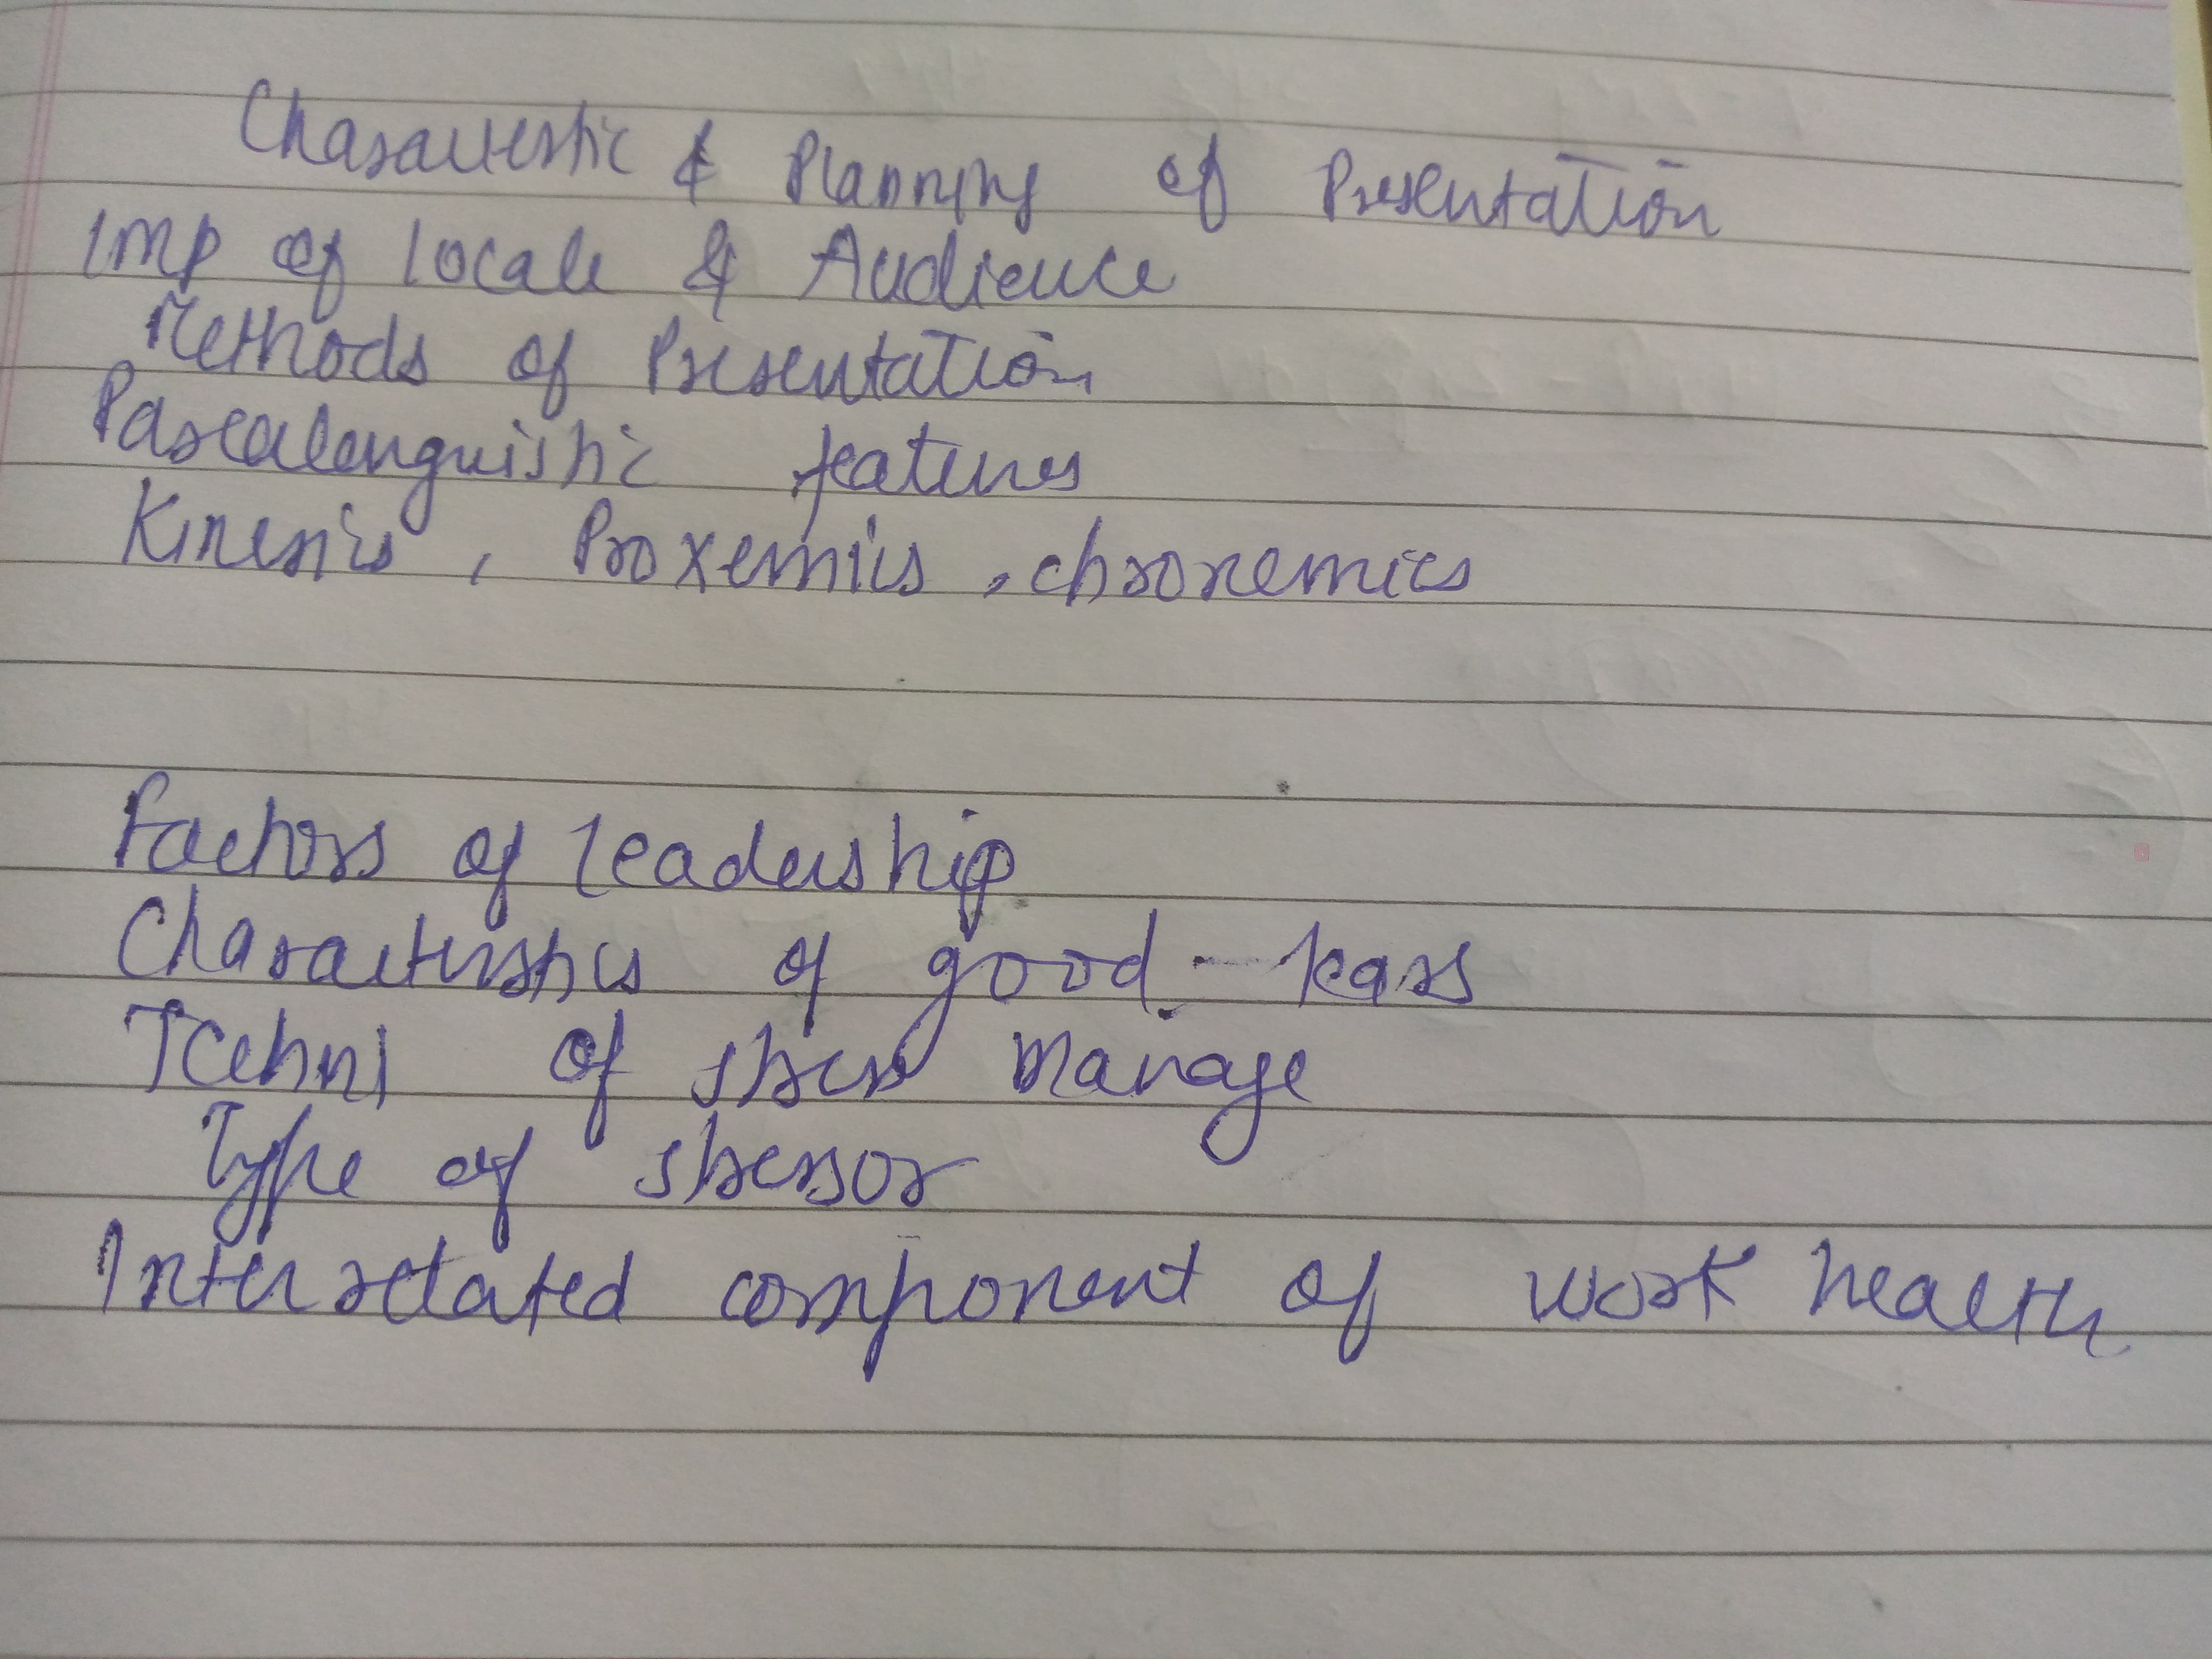 Charactestic & Planning of Presentation
Imp of locale & Audience
Methods of Presentation
Paralenguistic features
Kinesis, Proxemics, chronemics
Factors of leadership
Characterstics of good -
Techni of stress Manage
Type of stressor
Inter related component of work health